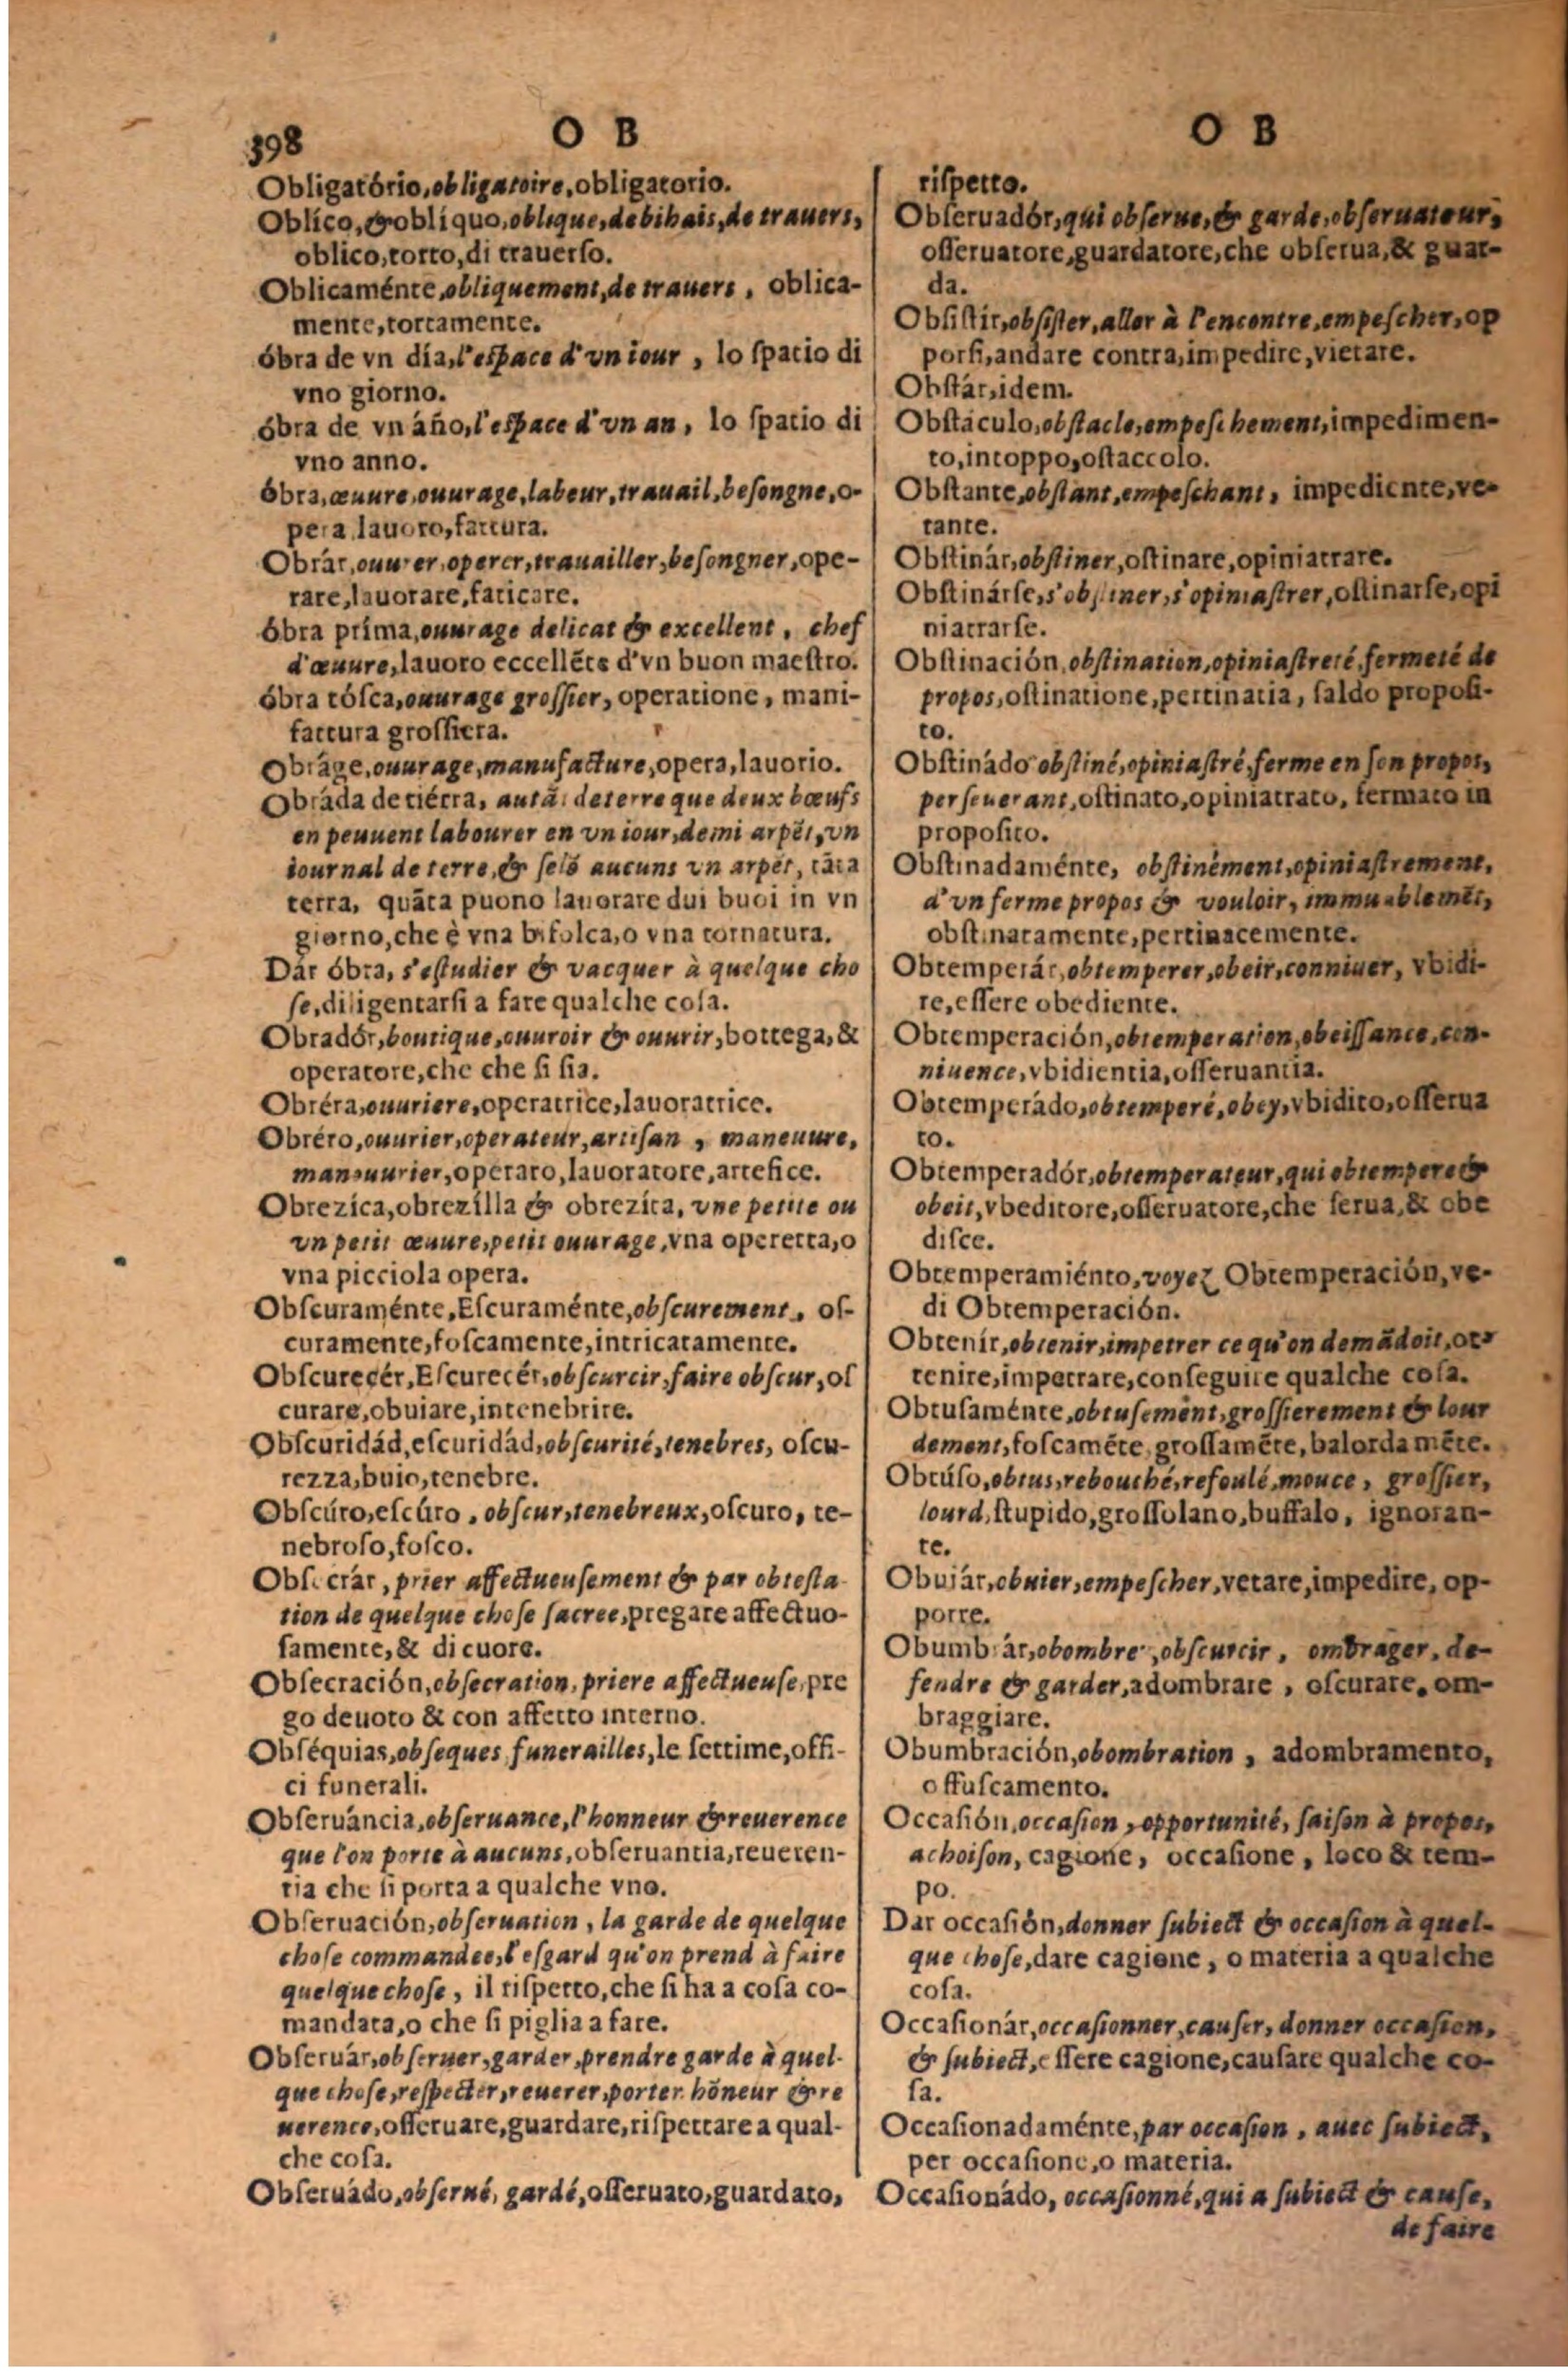 398 O B
Obligatório, obligatoire, obligatorio.
Oblíco, & oblíquo, oblique, de bihais, de trauers,
oblico, torto, di trauerſo.
Oblicaménte, obliquement, de trauers, oblica-
mente, tortamente.
óbra de vn día, l'eſpace d'vn iour, lo ſpatio di
vno giorno.
óbra de vn áño, l'eſpace d'vn an, lo ſpatio di
vno anno.
óbra, œuure, ouurage, labeur, trauail, beſongne, o-
pera, lauoro, fattura.
Obrár, ouurer, operer, trauailler, beſongner, ope-
rare, lauorare, faticare.
óbra príma, ouurage delicat & excellent, chef
d'œuure, lauoro eccellẽte d'vn buon maeſtro.
óbra tóſca, ouurage groſſier, operatione, mani-
fattura groſſiera.
Obráge, ouurage, manufacture, opera, lauorio.
Obráda de tiérra, autã: de terre que deux bœufs
en peuuent labourer en vn iour, demi arpẽt, vn
iournal de terre, & ſelõ aucuns vn arpẽt, tãta
terra, quãta puono lauorare dui buoi in vn
giorno, che è vna bifolca, o vna tornatura.
Dár óbra, s'eſtudier & vacquer à quelque cho
ſe, diligentarſi a fare qualche coſa.
Obradór, boutique, ouuroir & ouurir, bottega, &
operatore, che che ſi ſia.
Obréra, ouuriere, operatrice, lauoratrice.
Obréro, ouurier, operateur, artiſan, maneuure,
manouurier, operaro, lauoratore, artefice.
Obrezíca, obrezílla & obrezíta, vne petite ou
vn petit œuure, petit ouurage, vna operetta, o
vna picciola opera.
Obſcuraménte, Eſcuraménte, obſcurement, oſ-
curamente, foſcamente, intricatamente.
Obſcurecér, Eſcurecér, obſcurcir, faire obſcur, oſ
curare, obuiare, intenebrire.
Obſcuridád, eſcuridád, obſcurité, tenebres, oſcu-
rezza, buio, tenebre.
Obſcúro, eſcúro, obſcur, tenebreux, oſcuro, te-
nebroſo, foſco.
Obſecrár, prier affectueuſement & par obteſta-
tion de quelque choſe ſacree, pregare affectuo-
ſamente, & di cuore.
Obſecración, obſecration, priere affectueuſe, pre
go deuoto & con affetto interno.
Obſéquias, obſeques, funerailles, le ſettime, offi-
ci funerali.
Obſeruáncia, obſeruance, l'honneur & reuerence
que l'on porte à aucuns, obſeruantia, reueren-
tia che ſi porta a qualche vno.
Obſeruación, obſeruation, la garde de quelque
choſe commandee, l'eſgard qu'on prend à faire
quelque choſe, il riſpetto, che ſi ha a coſa co-
mandata, o che ſi piglia a fare.
Obſeruár, obſeruer, garder, prendre garde à quel-
que choſe, reſpecter, reuerer, porter hõneur & re
uerence, oſſeruare, guardare, riſpettare a qual-
che coſa.
Obſeruádo, obſerué, gardé, oſſeruato, guardato,
O B
riſpetto.
Obſeruadór, qui obſerue, & garde, obſeruateur,
oſſeruatore, guardatore, che obſerua, & guar-
da.
Obſiſtír, obſiſter, aller à l'encontre, empeſcher, op
porſi, andare contra, impedire, vietare.
Obſtár, idem.
Obſtáculo, obſtacle, empeſchement, impedimen-
to, intoppo, oſtaccolo.
Obſtante, obſtant, empeſchant, impediente, ve-
tante.
Obſtinár, obſtiner, oſtinare, opiniatrare.
Obſtinárſe, s'obſtiner, s'opiniaſtrer, oſtinarſe, opi
niatrarſe.
Obſtinación, obſtination, opiniaſtreté, fermeté de
propos, oſtinatione, pertinatia, ſaldo propoſi-
to.
Obſtinádo obſtiné, opiniaſtré, ferme en ſon propos,
perſeuerant, oſtinato, opiniatrato, fermato in
propoſito.
Obſtinadaménte, obſtinément, opiniaſtrement,
d'vn ferme propos & vouloir, immuablemẽt,
obſtinatamente, pertinacemente.
Obtemperár, obtemperer, obeir, conniuer, vbidi-
re, eſſere obediente.
Obtemperación, obtemperation, obeiſſance, con-
niuence, vbidientia, oſſeruantia.
Obtemperádo, obtemperé, obey, vbidito, oſſerua
to.
Obtemperadór, obtemperateur, qui obtempere &
obeit, vbeditore, oſſeruatore, che ſerua, & obe
diſce.
Obtemperamiénto, voyez Obtemperación, ve-
di Obtemperación.
Obtenír, obtenir, impetrer ce qu'on demãdoit, ot-
tenire, impetrare, conſeguire qualche coſa.
Obtuſaménte, obtuſement, groſſierement & lour
dement, foſcamẽte, groſſamẽte, balordamẽte.
Obtúſo, obtus, rebouché, refoulé, mouce, groſſier,
lourd, ſtupido, groſſolano, buffalo, ignoran-
te.
Obuiár, obuier, empeſcher, vetare, impedire, op-
porre.
Obumbrár, obombrer, obſcurcir, ombrager, de-
fendre & garder, adombrare, oſcurare, om-
braggiare.
Obumbración, obombration, adombramento,
offuſcamento.
Occaſión, occaſion, opportunité, ſaiſon à propos,
achoiſon, cagione, occaſione, loco & tem-
po.
Dar occaſión, donner ſubiect & occaſion à quel-
que choſe, dare cagione, o materia a qualche
coſa.
Occaſionár, occaſionner, cauſer, donner occaſion,
& ſubiect, eſſere cagione, cauſare qualche co-
ſa.
Occaſionadaménte, par occaſion, auec ſubiect,
per occaſione, o materia.
Occaſionádo, occaſionné, qui a ſubiect & cauſe,
de faire